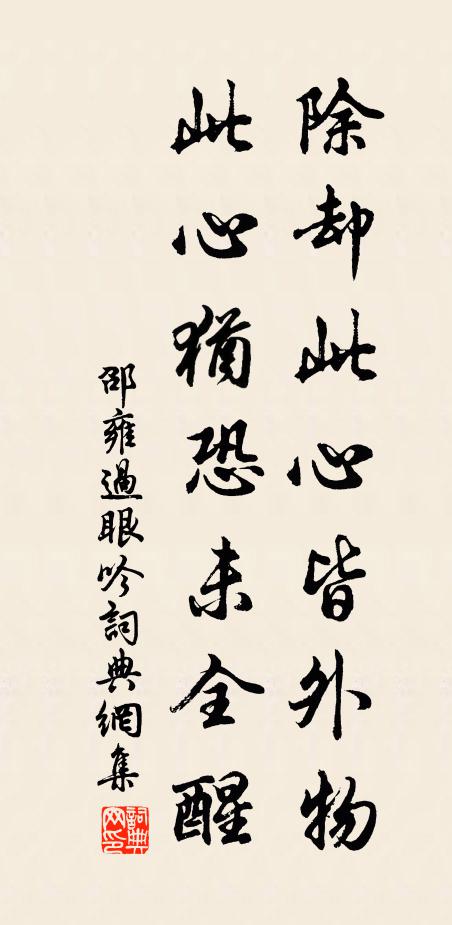 除却此心皆外物
此心猶恐未全醒
邵雍過眼吟詞典網集
詞典網印